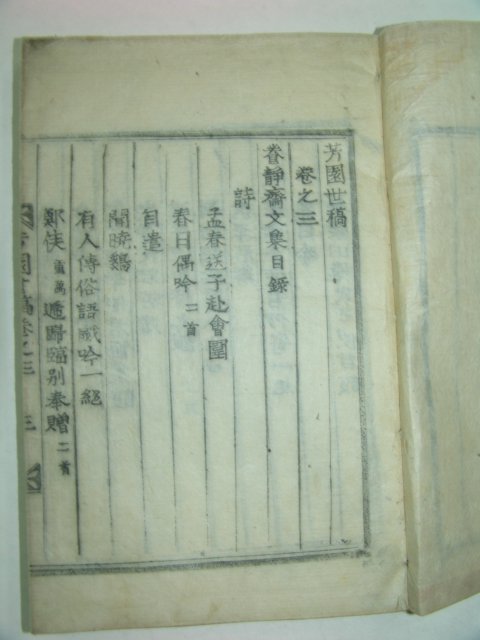 芳園世稿
卷之三
養靜齋文集目錄
詩
孟春送子赴會圍
春日偶吟 二首
自遣
聞曉鷄
有人傳俗語戲吟一絕
鄭侯 雷萬 遞歸臨別奉贈 二首
芳園世稿卷之三 三